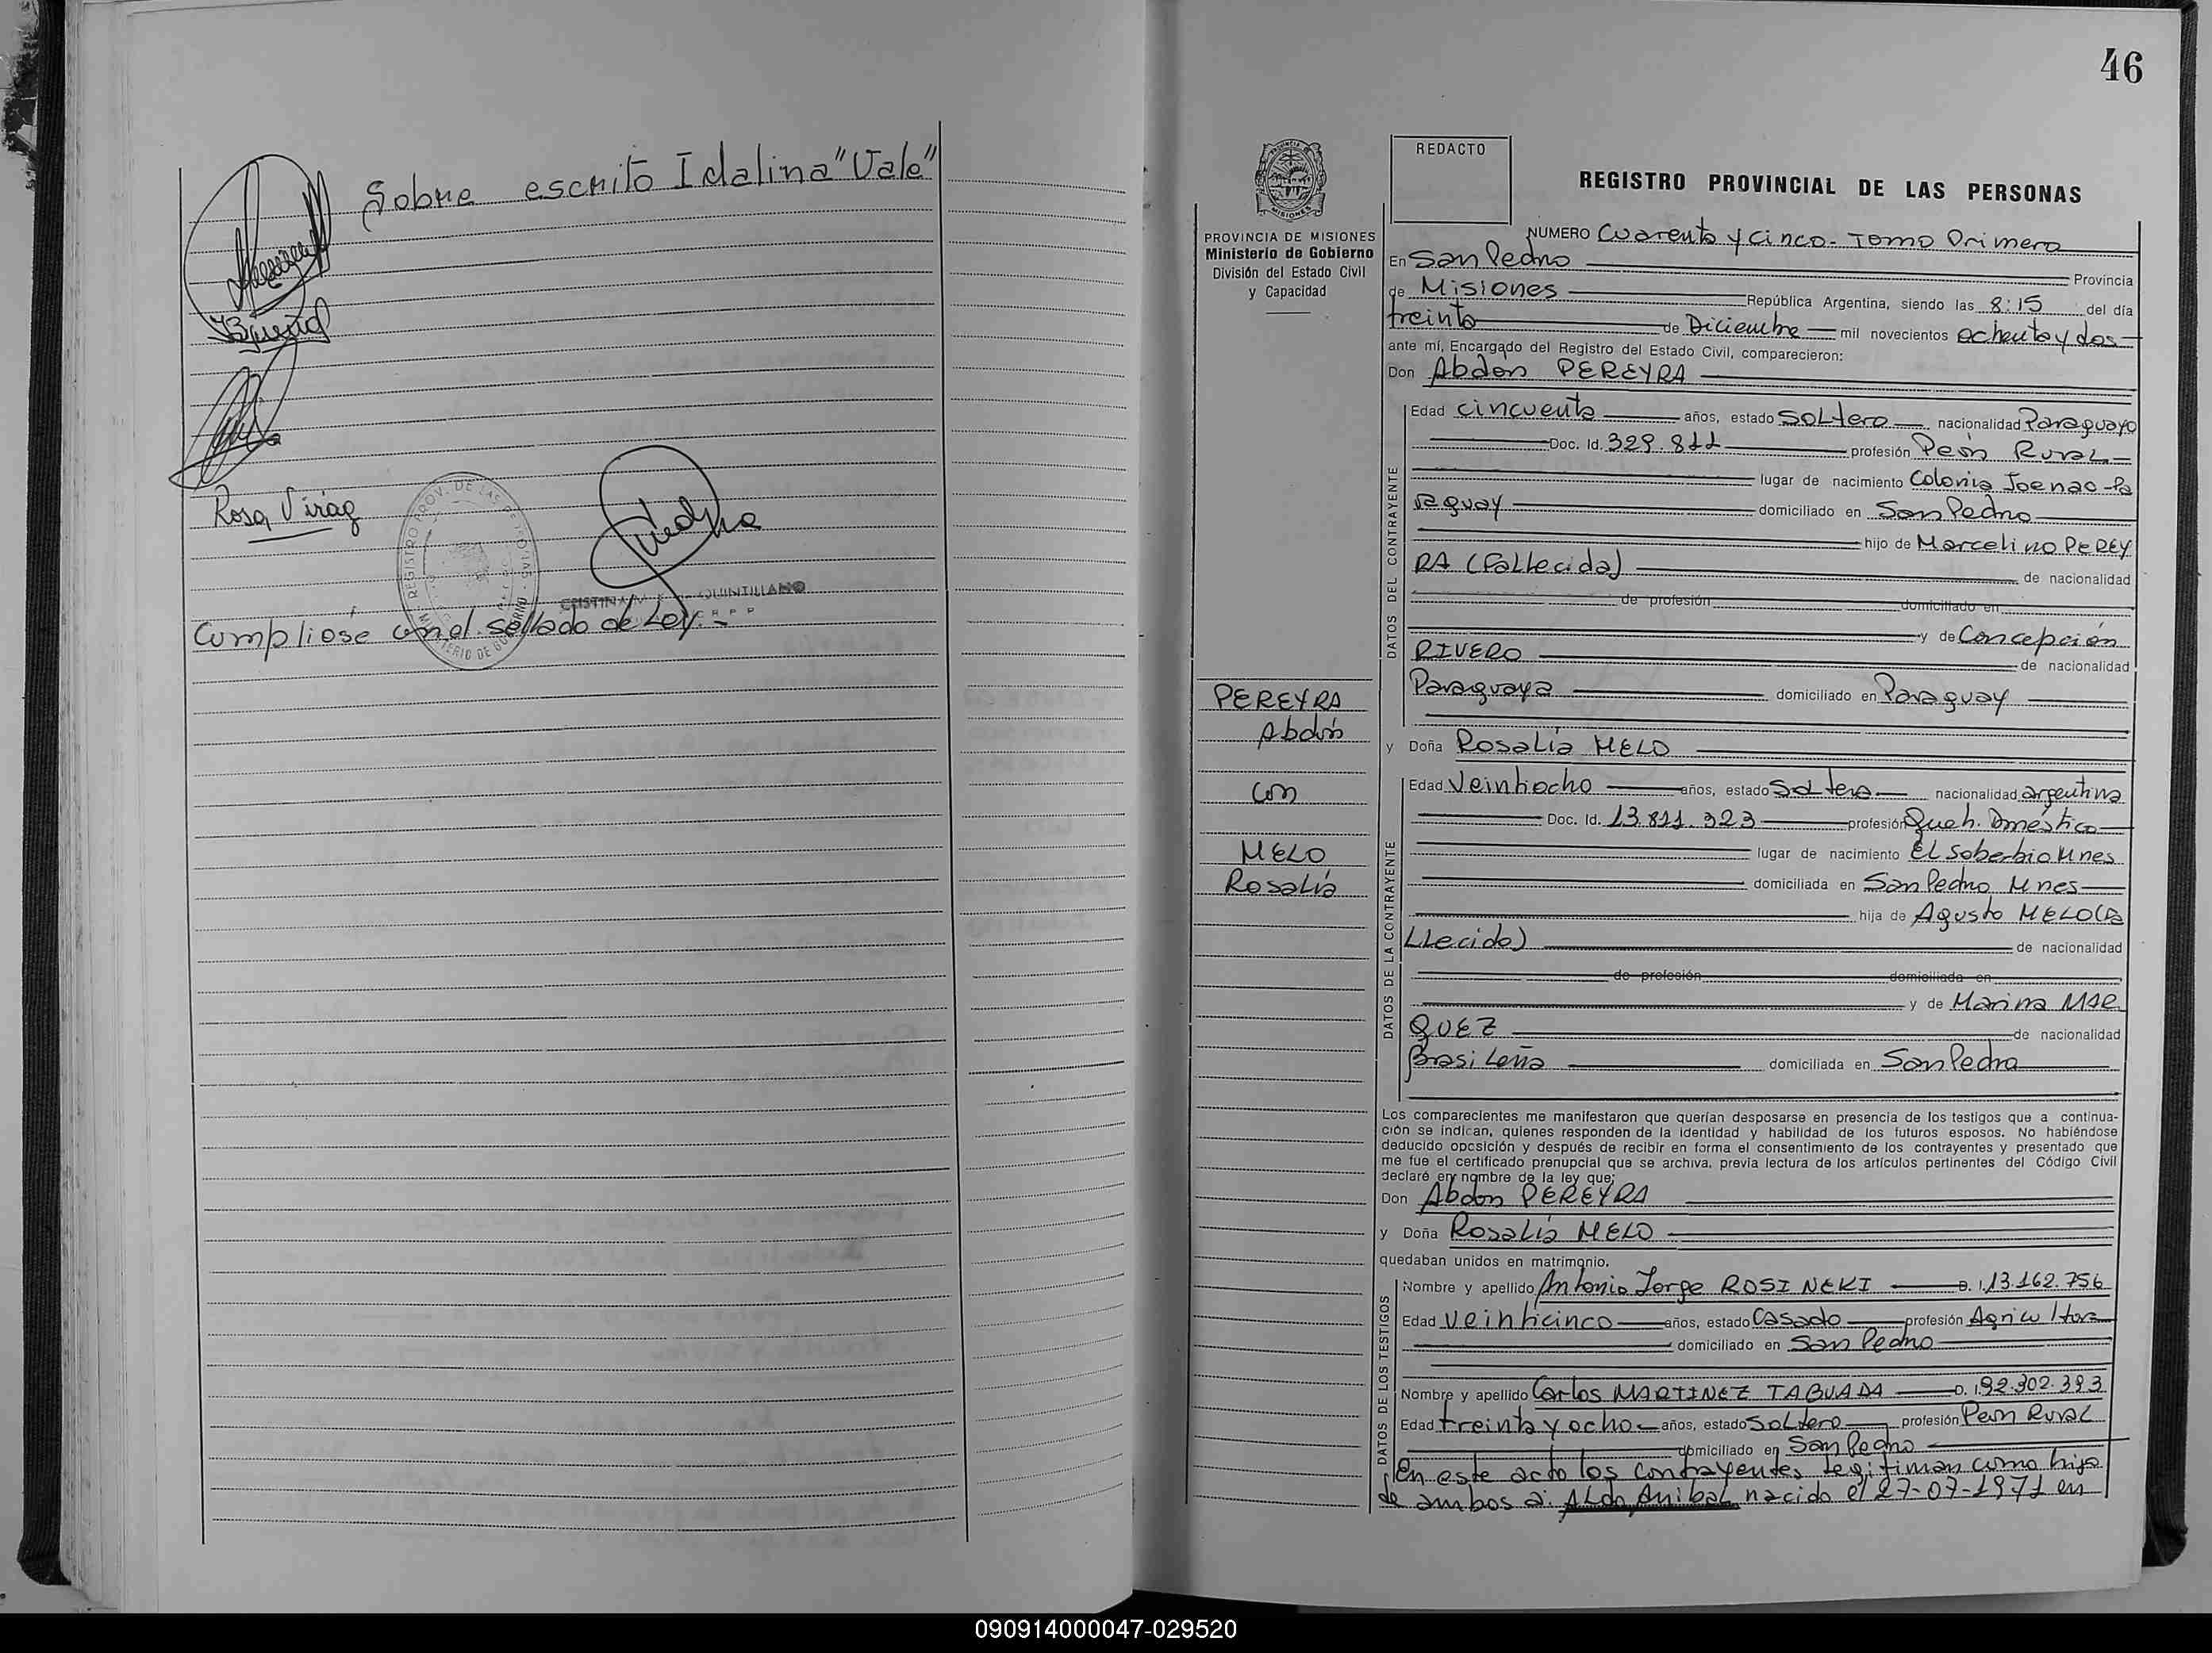 Sobre escrito Idalina "Vale"
Rosa Virag
Cumpliose con el sellado de Ley.-
46
REDACTO
REGISTRO PROVINCIAL DE LAS PERSONAS
PROVINCIA DE MISIONES
Ministerio de Gobierno
División del Estado Civil
y Capacidad
NUMERO Cuarenta y cinco - Tomo Primero
En San Pedro Provincia
de Misiones República Argentina, siendo las 8:15 del día
treinta de Diciembre mil novecientos ochenta y dos
ante mí, Encargado del Registro del Estado Civil, comparecieron:
Don Abdon PEREYRA
DATOS DEL CONTRAYENTE
Edad cincuenta años, estado Soltero nacionalidad Paraguayo
Doc. Id. 329.811 profesión Peón Rural
lugar de nacimiento Colonia -Pa
raguay domiciliado en San Pedro
hijo de Marcelino PEREY
RA (Fallecido) de nacionalidad
de profesión domiciliado en
y de Concepción
RIVERO de nacionalidad
Paraguaya domiciliado en Paraguay
PEREYRA
Abdón
con
MELO
Rosalía
y Doña Rosalía MELO
DATOS DE LA CONTRAYENTE
Edad Veintiocho años, estado Soltera nacionalidad argentina
Doc. Id. 13.811.323 profesión Queh. Doméstico
lugar de nacimiento El Soberbio Mnes
domiciliada en San Pedro Mnes
hija de Agusto MELO (Fa
llecido) de nacionalidad
de profesión domiciliada en
y de Marina MAR
QUEZ de nacionalidad
Brasileña domiciliada en San Pedro
Los comparecientes me manifestaron que querían desposarse en presencia de los testigos que a continua-
ción se indican, quienes responden de la identidad y habilidad de los futuros esposos. No habiéndose
deducido oposición y después de recibir en forma el consentimiento de los contrayentes y presentado que
me fue el certificado prenupcial que se archiva, previa lectura de los artículos pertinentes del Código Civil
declaré en nombre de la ley que:
Don Abdon PEREYRA
y Doña Rosalía MELO
quedaban unidos en matrimonio.
DATOS DE LOS TESTIGOS
Nombre y apellido Antonio Jorge ROSINEKI D. I. 13.162.756
Edad Veinticinco años, estado Casado profesión Agricultor
domiciliado en San Pedro
Nombre y apellido Carlos MARTINEZ TABUADA D. I. 92.302.393
Edad treinta y ocho años, estado Soltero profesión Peón Rural
domiciliado en San Pedro
En este acto los contrayentes legitiman como hijo
de ambos a: Aldo Anibal nacido el 27-07-1971 en
090914000047-029520